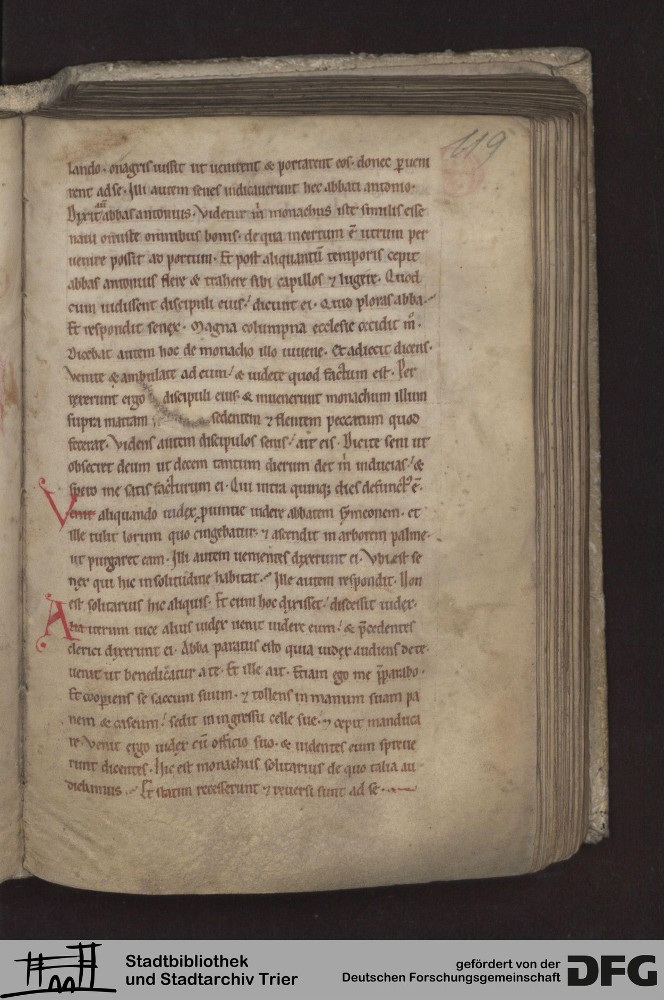 119
lando · onagris iussit ut uenirent & portarent eos · donec pueni
rent ad se · Illi autem senes indicauerunt hec abbati antonio ·
Dixit aūt abbas antonius · Videtur m̄ monachus iste similis esse
naui onuste omnibus bonis · de qua incertum ē utrum per
uenire possit ad portum · Et post aliquantū temporis cepit
abbas antonius flere & trahere sibi capillos ⁊ lugere · Quod
cum uidissent discipuli eius / dicunt ei · Quid ploras abba ·
Et respondit senex · Magna columpna ecclesie cecidit m̄ ·
Dicebat autem hoc de monacho illo iuuene · Et adiecit dicens ·
Venite & ambulate ad eum / & uidete quod factum est · Per
rexerunt ergo discipuli eius & inuenerunt monachum illum
supra mattam sedentem ⁊ flentem peccatum quod
fecerat · Videns autem discipulos senis / ait eis · Dicite seni ut
obsecret deum ut decem tantum dierum det m̄ inducias / &
spero me satis facturum ei · Qui intra quinq; dies defunct᷒ ē ·
Venit aliquando iudex prouintie uidere abbatem symeonem · et
ille tulit lorum quo cingebatur · ⁊ ascendit in arborem palme ·
ut purgaret eam · Illi autem uenientes dixerunt ei · Vbi est se
nex qui hic in solitudine habitat · Ille autem respondit · Non
est solitarius hic aliquis · Et cum hoc dixisset / discessit iudex ·
Alia iterum uice alius iudex uenit uidere eum / & p̄cedentes
clerici dixerunt ei · Abba paratus esto quia iudex audiens de te ·
uenit ut benedicatur a te · Et ille ait · Etiam ego me p̄parabo ·
Et cooperiens se saccum suum · ⁊ tollens in manum suam pa
nem & caseum / sedit in ingressu celle sue · ⁊ cepit manduca
re · Venit ergo iudex cū officio suo · & uidentes eum spreue
runt dicentes · Hic est monachus solitarius de quo talia au
diebamus · Et statim recesserunt ⁊ reuersi sunt ad se ·
Stadtbibliothek
und Stadtarchiv Trier
gefördert von der
Deutschen Forschungsgemeinschaft
DFG